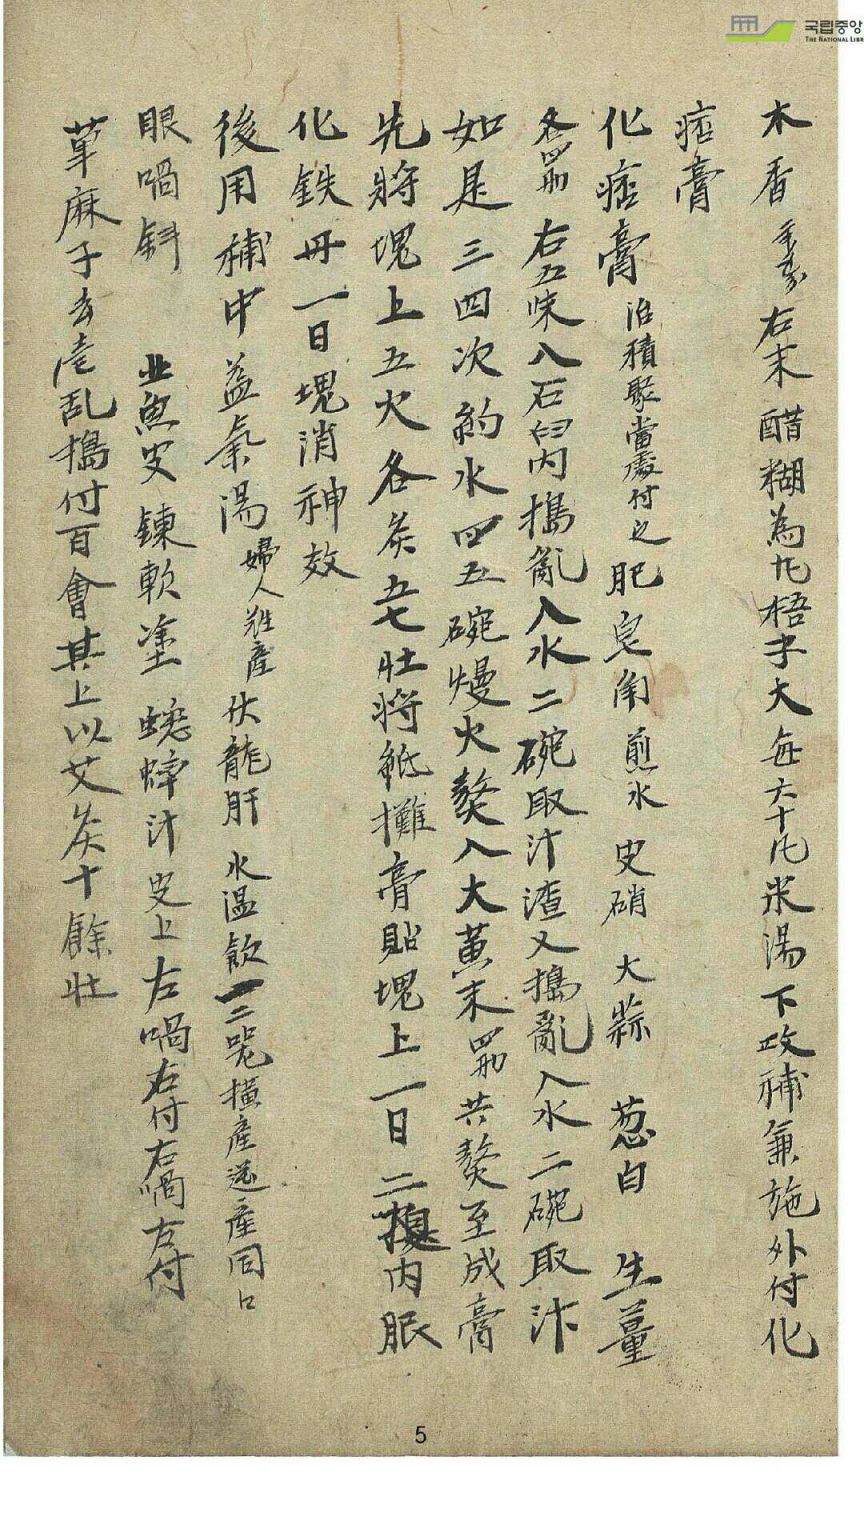 木香 右末醋糊為丸梧子大每六十丸米湯下政補兼施外付化
痞膏
化痞膏 治積聚當處付之 肥皂角煎水 皮硝 大蒜 葱白 生薑
各四兩 右五味入石臼內搗亂入水二碗取汁渣又搗亂入水二碗取汁
如是三四次約水四五碗熳火熬入大黃末四兩共熬至成膏
先將塊上五火各灸五七壯將紙攤膏貼塊上一日二換內眼
化鉄丹一日塊消神效
後用補中益氣湯 婦人難產 伏龍肝 水溫飲一二 橫產逆產同
眼喎斜 魚皮鍊軟塗 蟋蟀汁皮上左喎右付右喎左付
萆麻子去壳乱搗付百會其上以艾灸十餘壯
5
국립중앙
THE NATIONAL LIBR